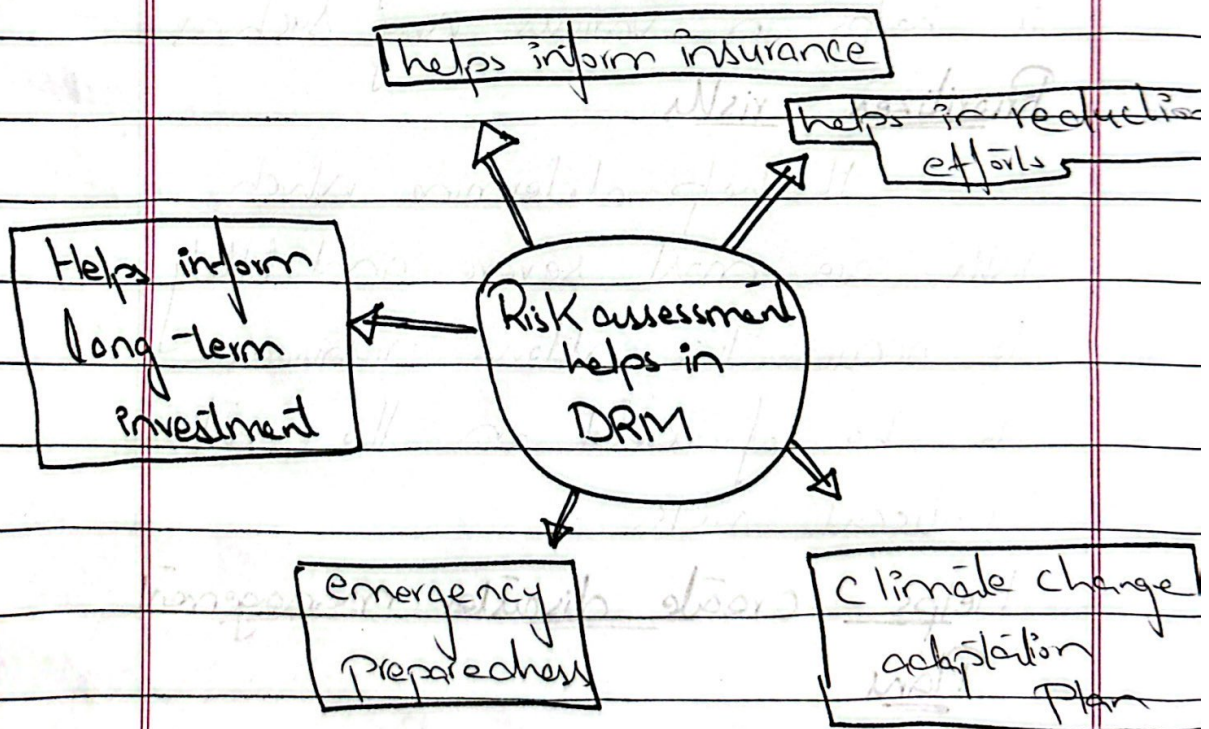 helps inform insurance
helps in reduction
efforts
Helps inform
long-term
investment
Risk assessment
helps in
DRM
emergency
preparedness
Climate change
adaptation
Plan